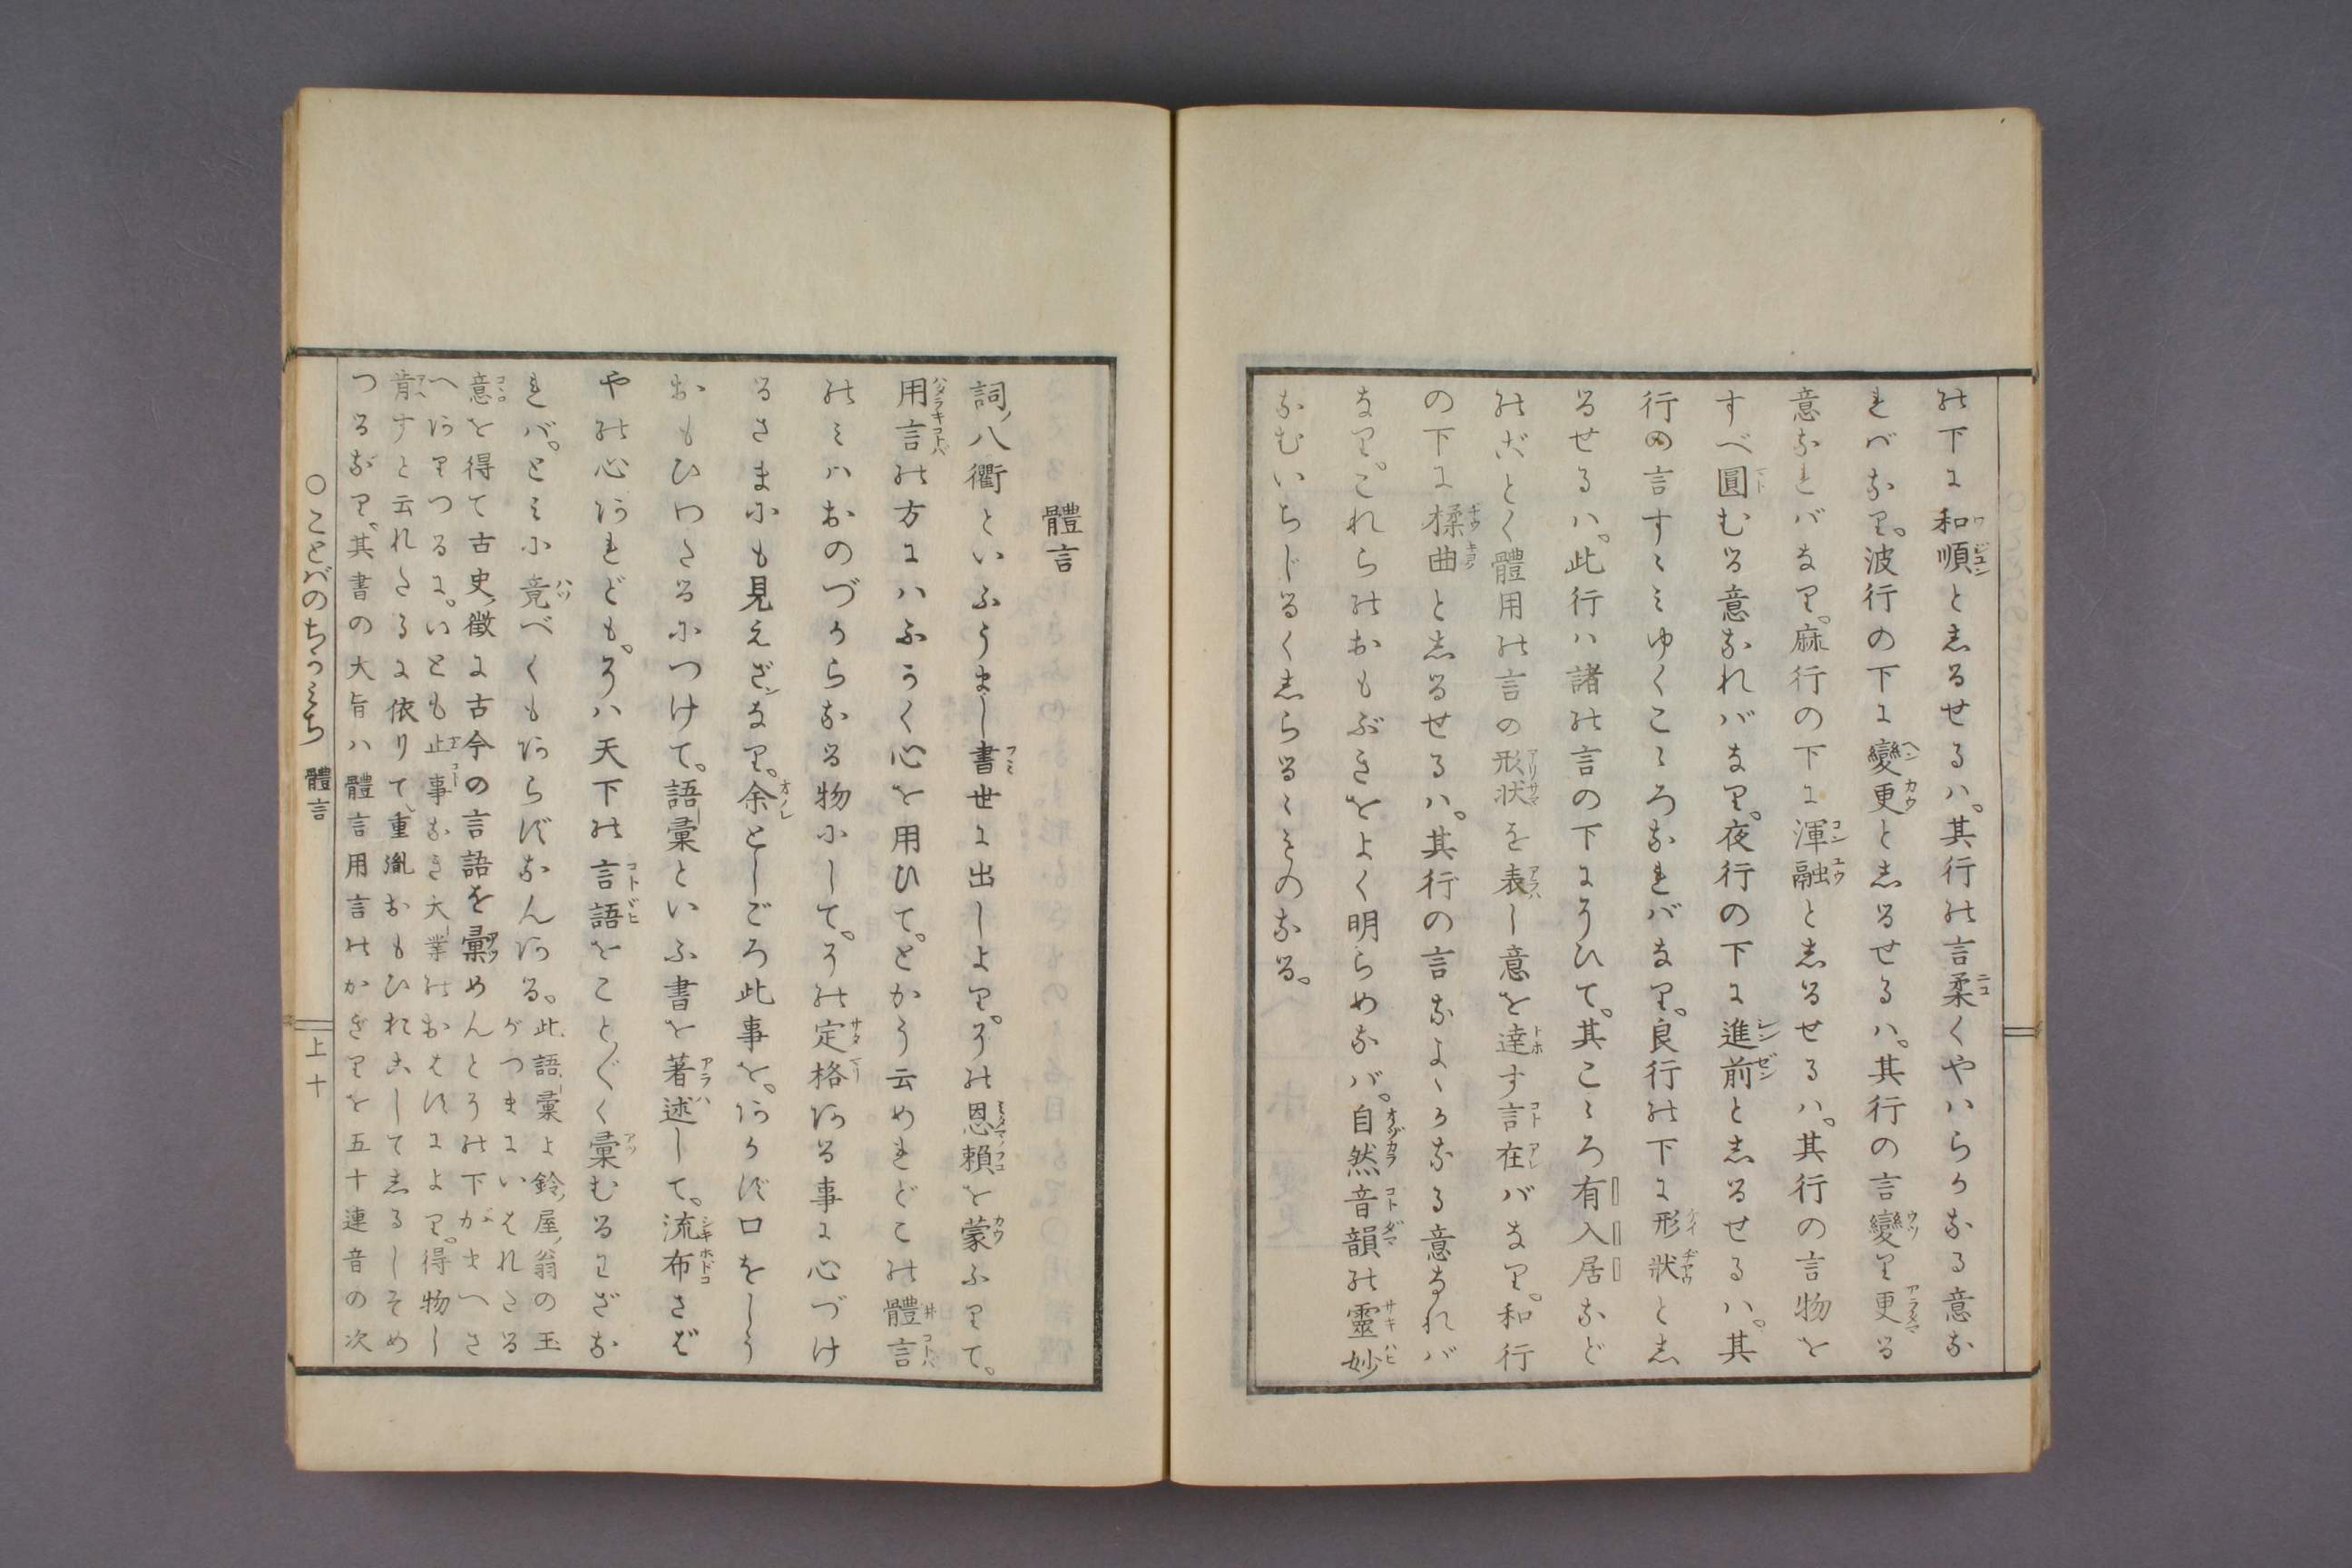 の下に和順としるせるハ。其行の言柔くやハらかなる意な
れバなり。波行の下に變更としるせるハ。其行の言變り更る
意なれバなり。麻行の下に渾融としるせるハ。其行の言物を
すべ圓むる意なれバなり。夜行の下に進前としるせるハ。其
行の言すゝミゆくこゝろなれバなり。良行の下に形狀とし
るせるハ。此行ハ諸の言の下にそひて。其こゝろ有入居など
のごとく體用の言の形状を表し意を達す言在バなり。和行
の下に揉曲としるせるハ。其行の言なよゝかなる意なれバ
なり。これらのおもぶきをよく明らめなバ。自然音韻の靈妙
なむいちじるくしらるゝものなる。
體言
詞ノ八衢といふうまし書世に出しより。その恩頼を蒙ふりて。
用言の方にハふかく心を用ひて。とかう云めれどこの體言
のミハおのづからなる物にして。その定格ある事に心づけ
るさまにも見えざンなり。余としごろ此事を。あかず口をしう
おもひわたるにつけて。語彙といふ書を著述して。流布さばや
やの心あれども。そハ天下の言語をこと〴〵く彙むるわざな
れバ。とミに竟べくもあらずなんある。此語彙よ鈴ノ屋ノ翁の玉
がつまにいはれたる
意を得て古史ノ徴に古今の言語を彙めんとその下がまへさ
へありつるに。いとも止事なき大業のおはすによリ。得物し
肯すと云れたるに依りて重胤おもひれこしてしるしそめ
つるなり。其書の大旨ハ體言用言のかぎりを五十連音の次
○ことバのちかみち 體言 上十